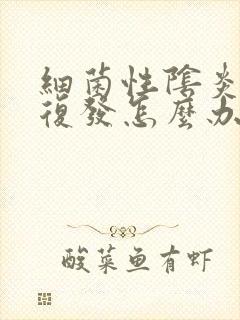 細菌性陰炎
復發怎麼办
酸菜鱼有虾